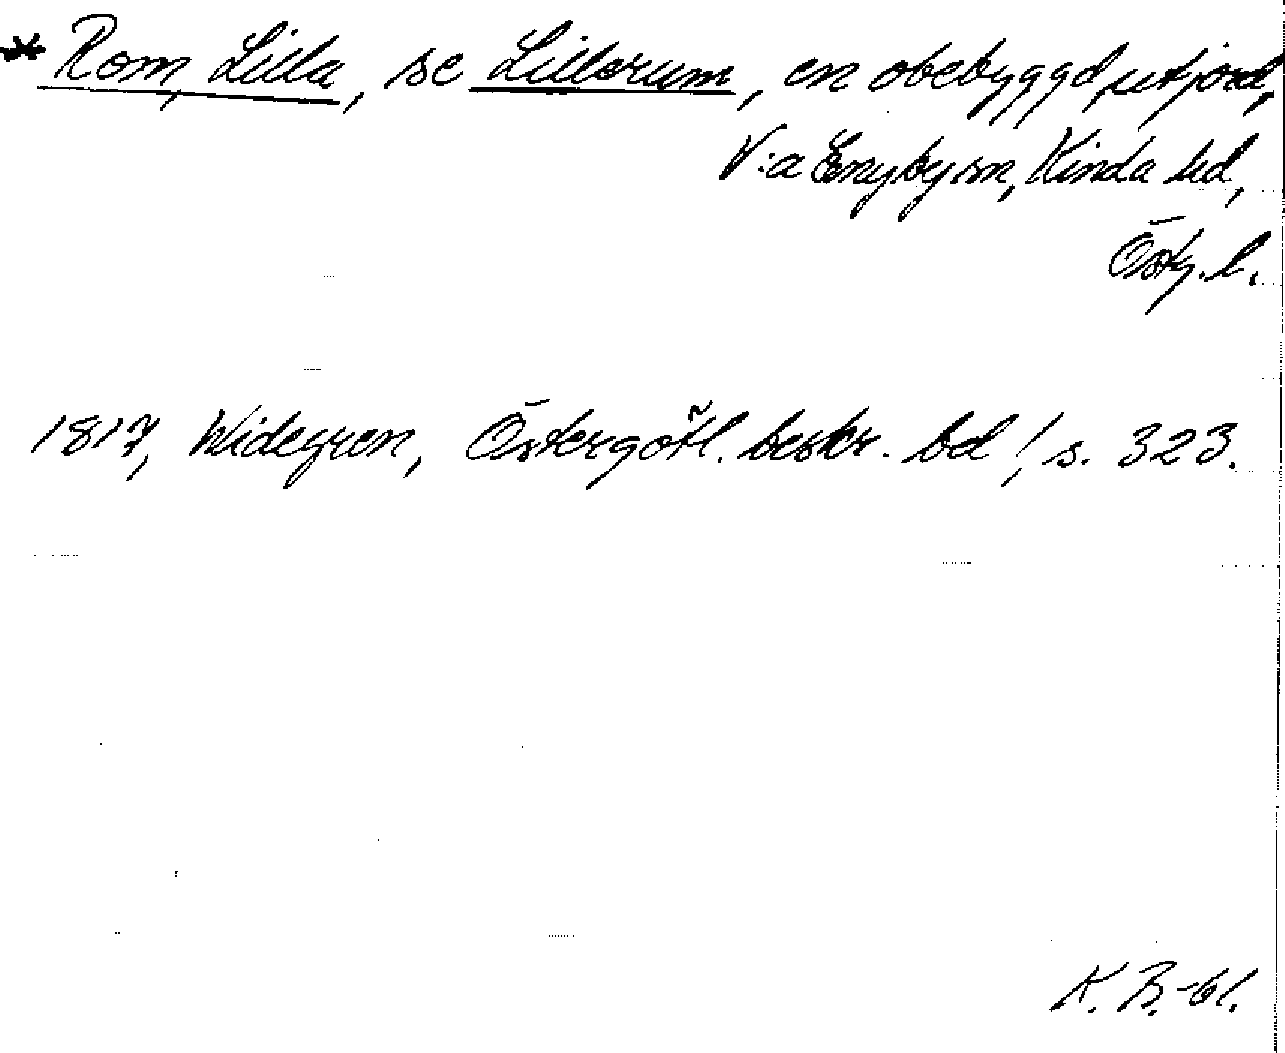 * Rom, Lilla, se Lillerum, en obebyggd utjord,
V:a Eneby sn, Kinda hd,
Östg. l.
1817, Widegren, Östergötl. beskr. bd 1, s. 323.
K. B.-61.